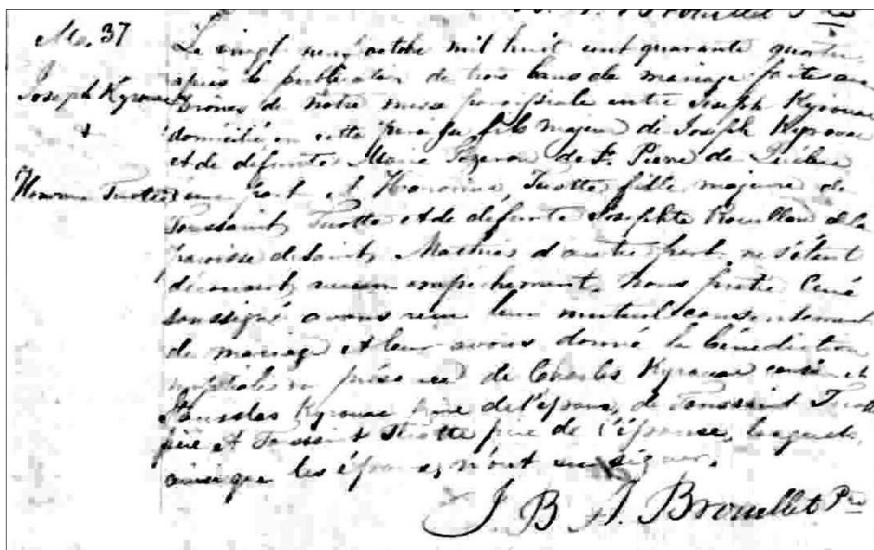 Brouillet Pre
M. 37
Joseph Kyrouac
+
Trotte
Le vingt neuf octobre mil huit cent quarante quatre
après la publication de trois bans de mariage faite au
prônes de notre messe paroissiale entre Joseph Kyrouac
domicilié en cette fils majeur de Joseph Kyrouac
et de défunte Marie de St. Pierre de
d'une part et Trotte fille majeure de
Toussaint Trotte et de défunte Josephte Rouillau de la
paroisse de Saint Mathias d'autre part ne s'étant
découvert aucun empêchement nous prêtre Curé
soussigné avons reçu leur mutuel consentement
de mariage et leur avons donné la bénédiction
nuptiale en présence de Charles Kyrouac cousin et
Stanislas Kyrouac de l'époux, de Toussaint Trotte
père et Toussaint Trotte de l'épouse, lesquels,
ainsi que les époux n'ont su signer.
J. B. A. Brouillet Pre